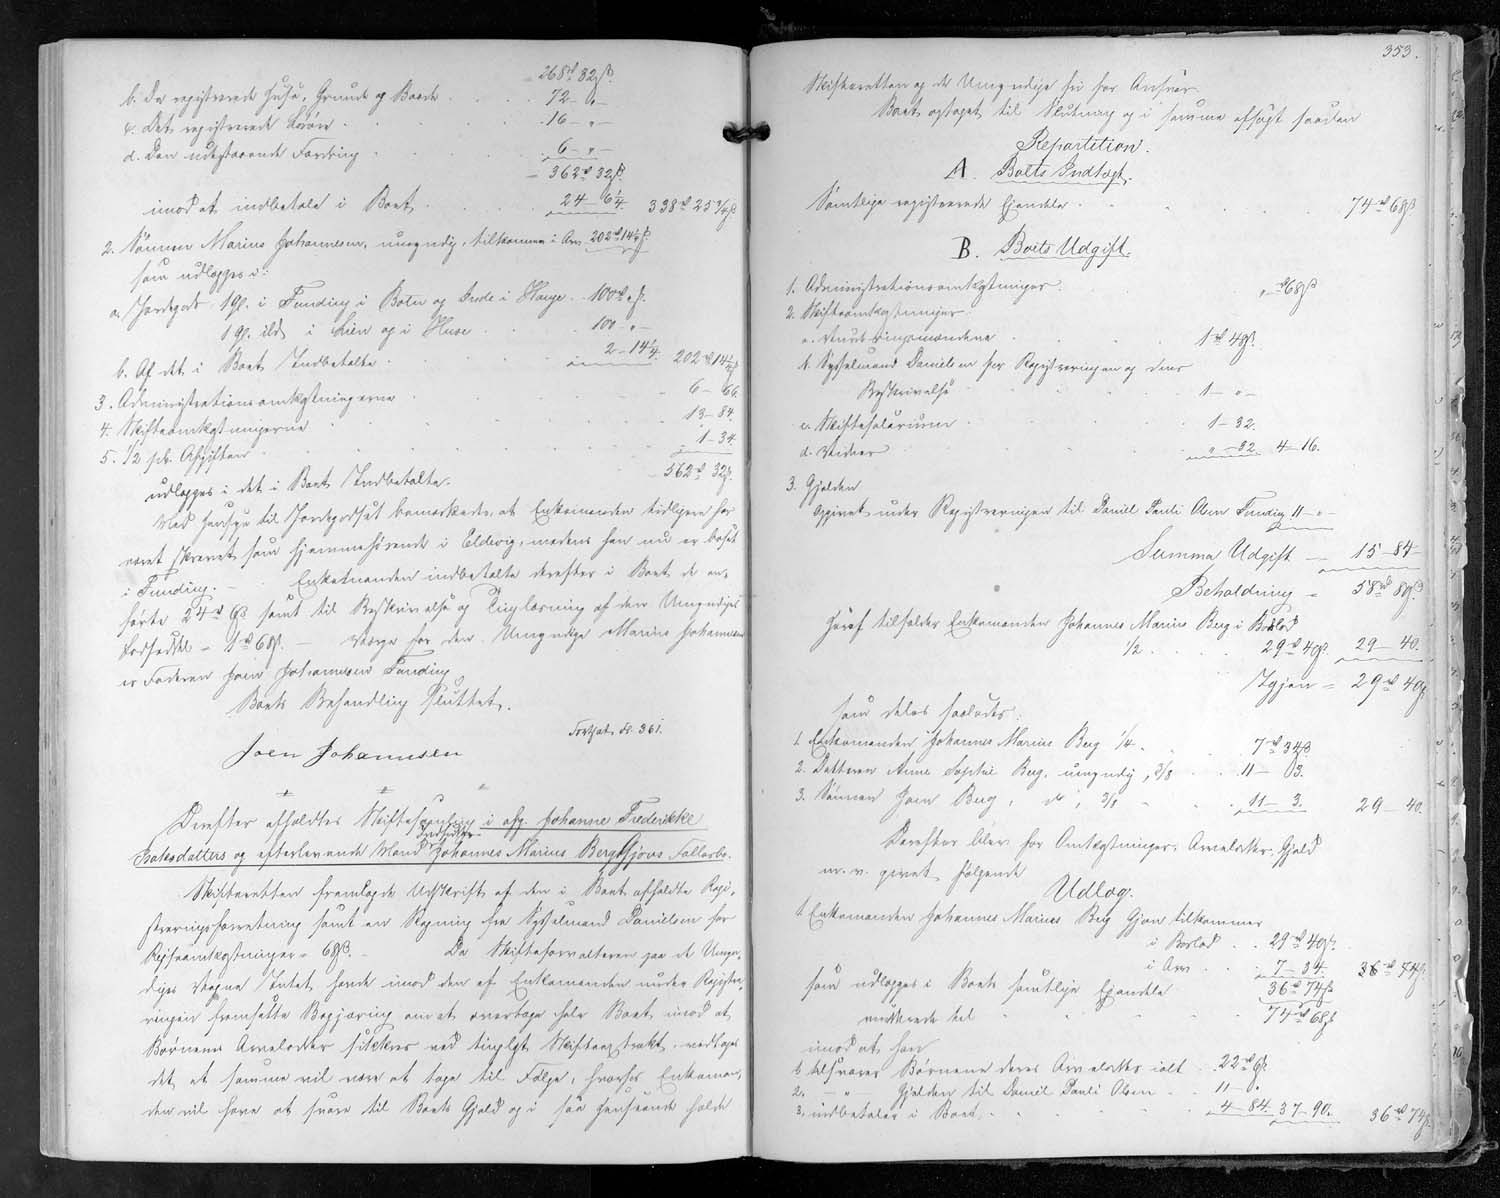 268 rd 32 ß.
b. De registrerede Huse, Grunde og Baade . . 72 - " -
c. Det registrerede Løsøre . . . 16 - " -
d. Den udestaaende Fordring . . . 6 - " -
362 rd 32 ß.
imod at indbetale i Boet . . . 24 - 6 1/4. 338 rd 25 3/4 ß
2. Sønnen Marius Johannesen, umyndig, tilkommer i Arv 202 rd 14 1/4 ß.
som udlægges i:
a. Jordegods 1 Gl. i Funding i Bøen og Inde i Hauge . . 100 rd " ß.
1 Gl. ibd. i Lien og i Huse . . . 100 - " -
b. Af det i Boet Indbetalte . . . 2 - 14 1/4. 202 rd 14 1/4 ß
3. Administrationsomkostningerne . . . 6 - 66.
4. Skifteomkostningerne . . . 13 - 84.
5. 1/2 pct. Afgiften . . . 1 - 34.
udlægges i det i Boet Indbetalte. 562 rd 32 ß.
Med Hensyn til Jordegodset bemærkedes, at Enkemanden tidligere har
været skrevet som hjemmehørende i Eldevig, medens han nu er bosat
i Funding. - Enkemanden indbetalte derefter i Boet de an-
førte 24 rd 6 ß samt til Beskrivelse og Tinglæsning af den Umyndiges
Lodseddel = 1 rd 68 ß. - Værge for den Umyndige Marius Johannesen
er Faderen Joen Johannesen Funding
Boets Behandling sluttet.
Fortsat Fol. 361.
Joen Johannesen
Derefter afholdtes Skiftesamling i afg. Johanne Frederikke
Isaksdatters og efterlevende Mand Johannes Marius Berg Gjovs Fællesbo.
Skifteretten fremlagde Udskrift af den i Boet afholdte Regi-
streringsforretning samt en Regning fra Sysselmand Danielsen for
Rejseomkostninger = 68 ß. - Da Skifteforvalteren paa de Umyn-
diges Vegne Intet havde imod den af Enkemanden under Registre-
ringen fremsatte Begjæring om at overtage hele Boet imod at
Børnenes Arvelodder sikkres ved tinglyst Skifteextrakt, vedtoges
det, at samme vil være at tage til Følge, hvorfor Enkeman-
den vil have at svare til Boets Gjæld og i saa Henseende holde
353.
Skifteretten og de Umyndige fri for Ansvar.
Boet optaget til Slutning og i samme afsagt saadan
Repartition.
A. Boets Indtægt.
Samtlige registrerede Ejendele . . . 74 rd 68 ß.
B. Boets Udgift.
1. Administrationsomkostninger . . . " rd 68 ß
2. Skifteomkostninger
a. Vurderingsmændene . . . 1 rd 48 ß.
b. Sysselmand Danielsen for Registreringen og dens
Beskrivelse 1 - " -
c. Skiftesalarium . . . 1 - 32.
d. Vidner . . . " - 32. 4 - 16.
3. Gjælden
opgivet under Registreringen til Daniel Pauli Olsen Funding 11 - " -
Summa Udgift - 15 - 84 -
Beholdning = 58 rd 80 ß
Heraf tilfalder Enkemanden Johannes Marius Berg i Boslod
1/2 . . . 29 rd 40 ß. 29 - 40.
Igjen = 29 rd 40 ß.
som deles saaledes:
1. Enkemanden Johannes Marius Berg 1/4 . . . 7 rd 34 ß
2. Datteren Anne Sophie Berg, umyndig, 3/8 . . 11 - 3.
3. Sønnen Joen Berg, do, 3/8 . . . 11 - 3. 29 - 40.
Derefter blev for Omkostninger, Arvelodder, Gjæld
m. v. givet følgende
Udlæg.
1. Enkemanden Johannes Marius Berg Gjov tilkommer
i Boslod . . 29 rd 40 ß.
i Arv . . . 7 - 34. 36 rd 74 ß.
som udlægges i Boets samtlige Ejendele 36 rd 74 ß
vurderede til . . . 74 rd 68 ß
imod at han
1. tilsvarer Børnene deres Arvelodder ialt . . 22 rd 6 ß.
2. - " - Gjælden til Daniel Pauli Olsen . . 11 - " .
3. indbetaler i Boet . . . 4 - 84. 37 - 90. 36 rd 74 ß.